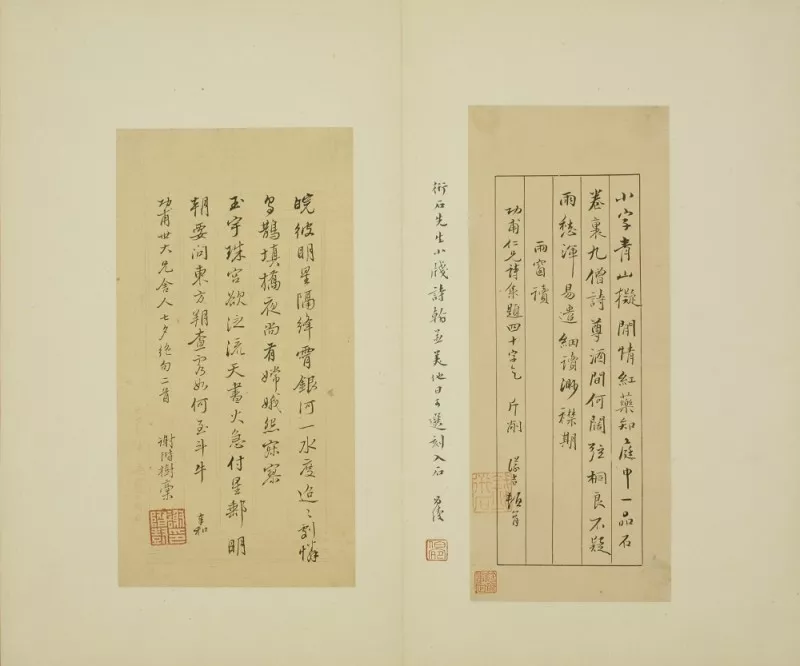 小字青山擬閒情紅藥知庭中一品石
卷裏九僧詩尊酒間何闊弦桐良不疑
雨愁渾易遣細讀渺襟期
雨窗讀
功甫仁兄詩集題四十字乞 斤削
頓首
衎石先生小牋詩翰並美他日可選刻入石
皖彼明星隔絳霄銀河一水度迢〻劇憐
烏鵲填橋夜尚有嫦娥怨寂寥
玉宇珠宮欲泛流天書火急付星郵明
朝要問東方朔查客如何至斗牛
功甫世大兄舍人七夕絕句二首
謝階樹稾